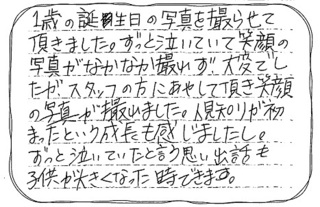 1歳の誕生日の写真を撮らせて
頂きました。ずっと泣いていて笑顔の
写真がなかなか撮れず大変でし
たがスタッフの方にあやして頂き笑顔
の写真が撮れました。人見知りが初
まったという成長も感じましたし。
ずっと泣いていたと言う思い出話も
子供が大きくなった時できます。